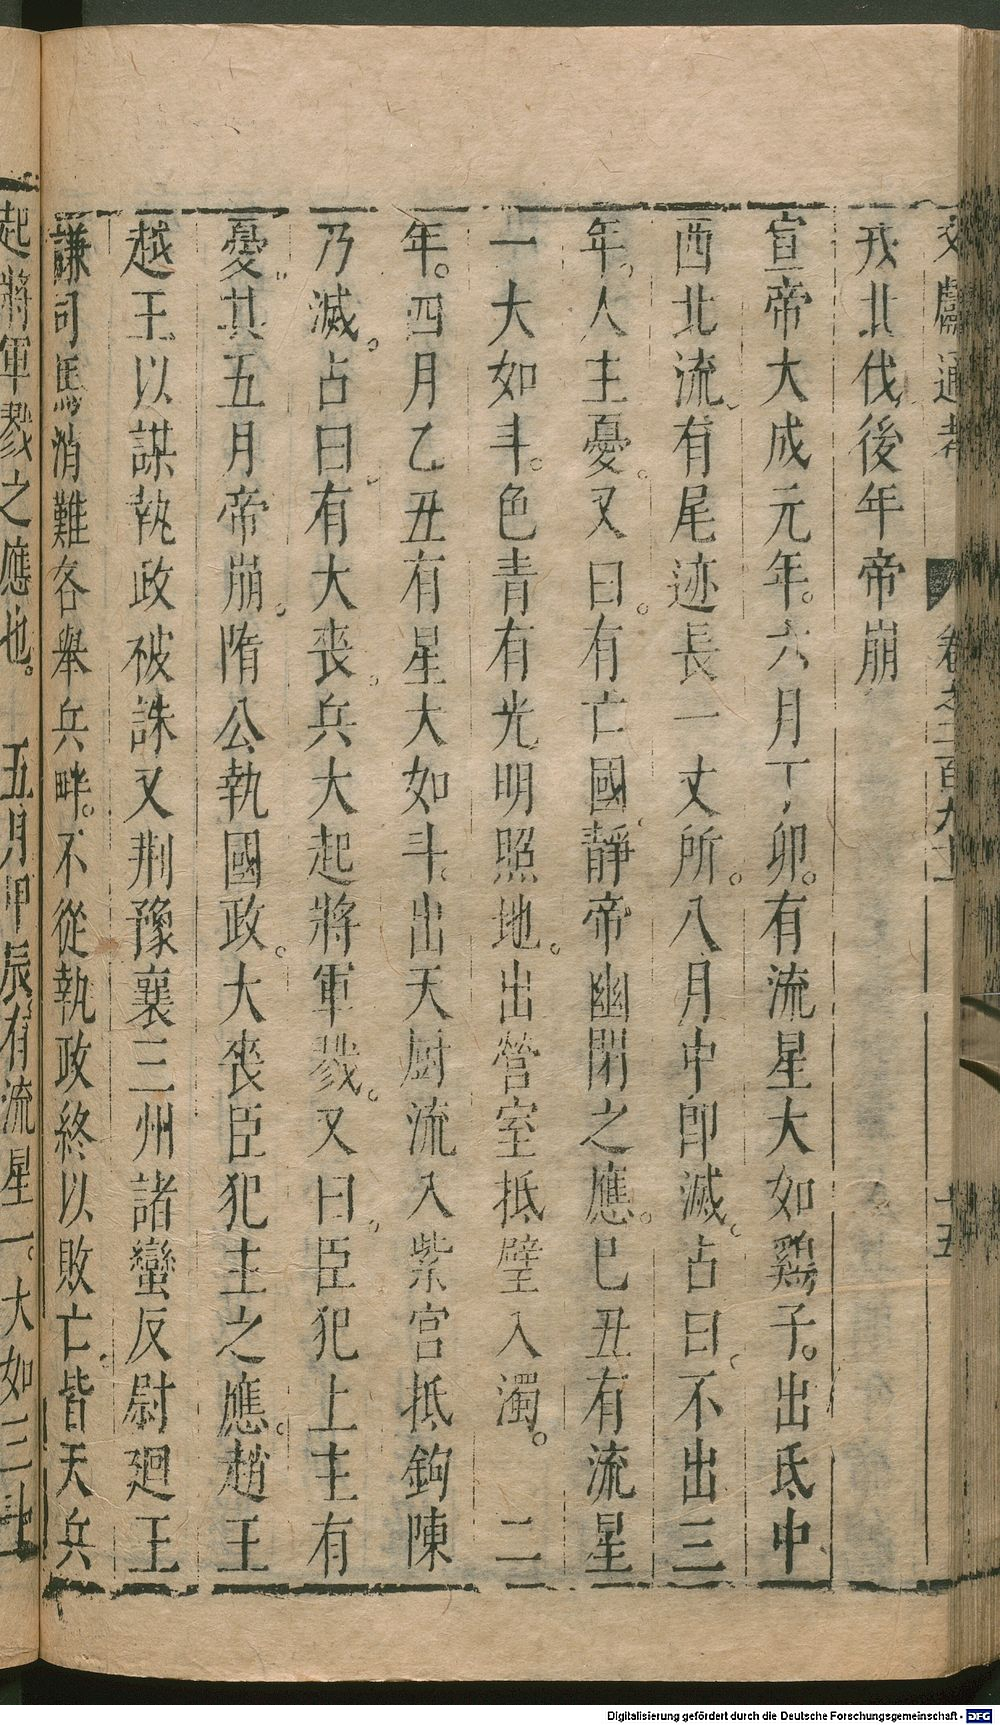 文獻通考 卷之二百九十一 十五
戎北伐後年帝崩
宣帝大成元年。六月丁卯。有流星大如鷄子。出氐中
西北流。有尾迹長一丈所。八月中卽滅。占曰。不出三
年。人主憂。又曰。有亡國。靜帝幽閉之應。巳丑有流星
一大如斗。色青有光明照地。出營室抵壁入濁。 二
年。四月乙丑有星大如斗。出天厨流入紫宮抵鉤陳
乃滅。占曰。有大喪。兵大起將軍戮。又曰。臣犯上主有
憂。其五月帝崩。隋公執國政。大喪臣犯主之應。趙王
越王以謀執政被誅又荆豫襄三州諸蠻反尉廻王
謙司馬消難各舉兵畔。不從執政終以敗亡。皆天兵
起將軍戮之應也。 五月甲辰有流星一。大如三斗
Digitalisierung gefördert durch die Deutsche Forschungsgemeinschaft - DFG